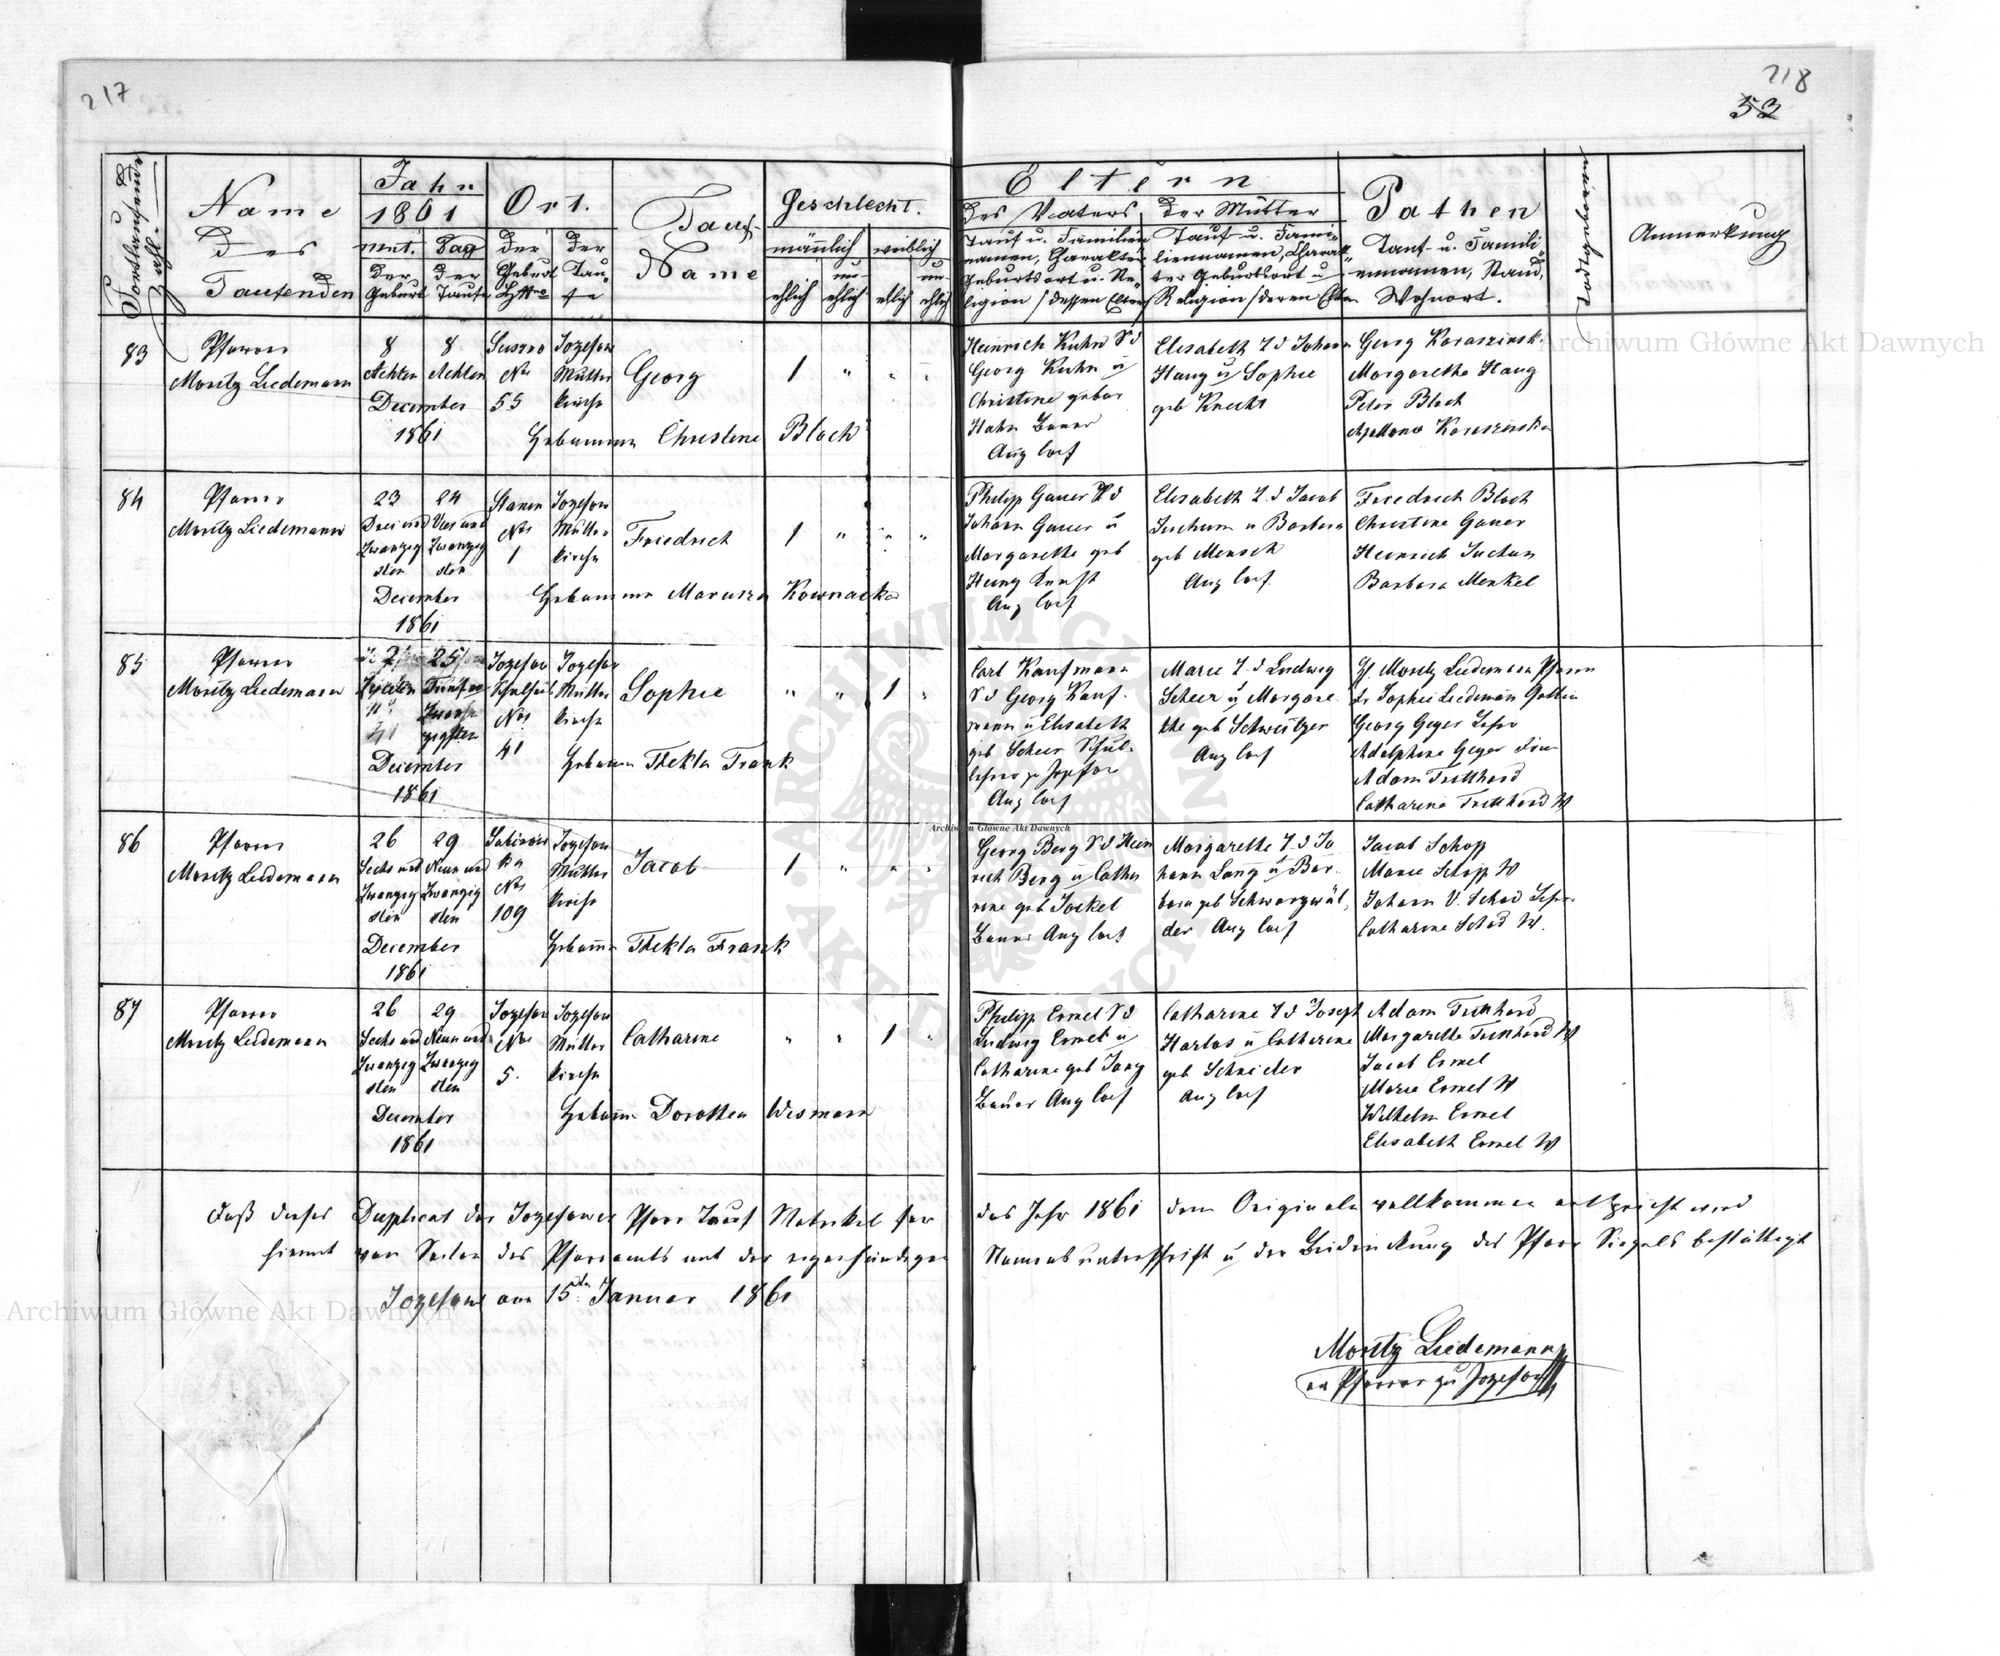 217
218
53
Fortlaufende Zahl
Name
des
Taufenden
Jahr
1861
Mnt.
Tag
der
Geburt
der
Taufe
Ort.
der
Geburt
der
Tau-
fe
Tauf-
Name
Geschlecht.
männlich
weiblich
ehlich
un-
ehlich
ehlich
un-
ehlich
Eltern
des Vaters
der Mutter
Tauf u. Familien
namen, Charakter
Geburtsort u. Re-
ligion / dessen Eltern
Tauf u. Fami-
liennamen, Charak-
ter Geburtsort u.
Religion / deren Eltern
Pathen
Tauf u. Famili-
ennamen, Stand,
Wohnort.
Todtgeboren
Anmerkung
83
Pfarrer
Moritz Liedemann
8
Achten
8
Achten
December
1861
No
55
Jozefow
Mutter
kirche
Georg
1 " " "
Hebamme Christine Bloch
Heinrich Kuhn S d
Georg Kuhn u
Christine gebor
Hahn Bauer
Aug Conf
Elisabeth T d Johann
Haug u Sophie
geb Knecht
Georg Karaszinski
Margarethe Haug
Peter Bloch
Apollona Karaszinska
84
Pfarrer
Moritz Liedemann
23
Drei und
Zwanzig
sten
24
Vier und
Zwanzig
sten
December
1861
No
1
Jozefow
Mutter
kirche
Friedrich
1 " " "
Hebamme Marusza Kownacka
Philipp Gauer S d
Johann Gauer u
Margarethe geb
Aug Conf
Elisabeth T. d Jacob
Juchum u Barbara
geb Mensch
Aug Conf.
Friedrich Bloch
Christine Gauer
Heinrich Juchum
Barbara Menkel
85
Pfarrer
Moritz Liedemann
25
December
1861
Jozefow
No
41
Jozefow
Mutter
kirche
Sophie
" " 1 "
Hebamme Thekla Frank
Carl Kaufmann
S d Georg Kauf-
mann u Elisabeth
geb Scheer Schul-
lehrer zu Jozefow
Aug Conf
Marie T. d Ludwig
Scheer u Margare-
the geb Schweitzer
Aug Conf
H. Moritz Liedemann Pfarrer
Fr Sophie Liedemann Gattin
Georg Geyer
Adolphine Geyer
Adam Tritthard
Catharine Tritthard W
86
Pfarrer
Moritz Liedemann
26
Sechs und
Zwanzig
sten
29
Neun und
Zwanzig
sten
December
1861
No
109
Jozefow
Mutter
kirche
Jacob
1 " " "
Hebamme Thekla Frank
Georg Berg S d Hein
rich Berg u Catha
rine geb Jockel
Bauer Aug Conf
Margarethe T. d Jo
hann Lang u Bar-
bara geb Schwarzwäl-
der Aug Conf
Jacob Schopp
Marie Schopp W
Johann V. Schad
Catharine Schad W.
87
Pfarrer
Moritz Liedemann
26
Sechs und
Zwanzig
sten
29
Neun und
Zwanzig
sten
December
1861
Jozefow
No
5.
Jozefow
Mutter
kirche
Catharine
" " 1 "
Hebamme Dorothea Wismann
Philipp Ermel S d
Ludwig Ermel u
Catharine geb Jung
Bauer Aug Conf
Catharine T d Joseph
Harlos u Catharine
geb Schneider
Aug Conf
Adam Tritthard
Margarethe Tritthard W
Jacob Ermel
Marie Ermel W
Wilhelm Ermel
Elisabeth Ermel W
Daß dieses Duplicat der Jozefower Pfarr Tauf Matrikel für das Jahr 1861 dem Originale vollkommen entspricht wird
hiemit von Seiten des Pfarramts mit der eigenhändigen Namensunterschrift u der Beidrückung des Pfarr Siegels bestättigt
Jozefow am 15ten Januar 1861
Moritz Liedemann
ev Pfarrer zu Jozefow
Archiwum Główne Akt Dawnych
Archiwum Główne Akt Dawnych
Archiwum Główne Akt Dawnych
ARCHIWUM GŁÓWNE AKT DAWNYCH